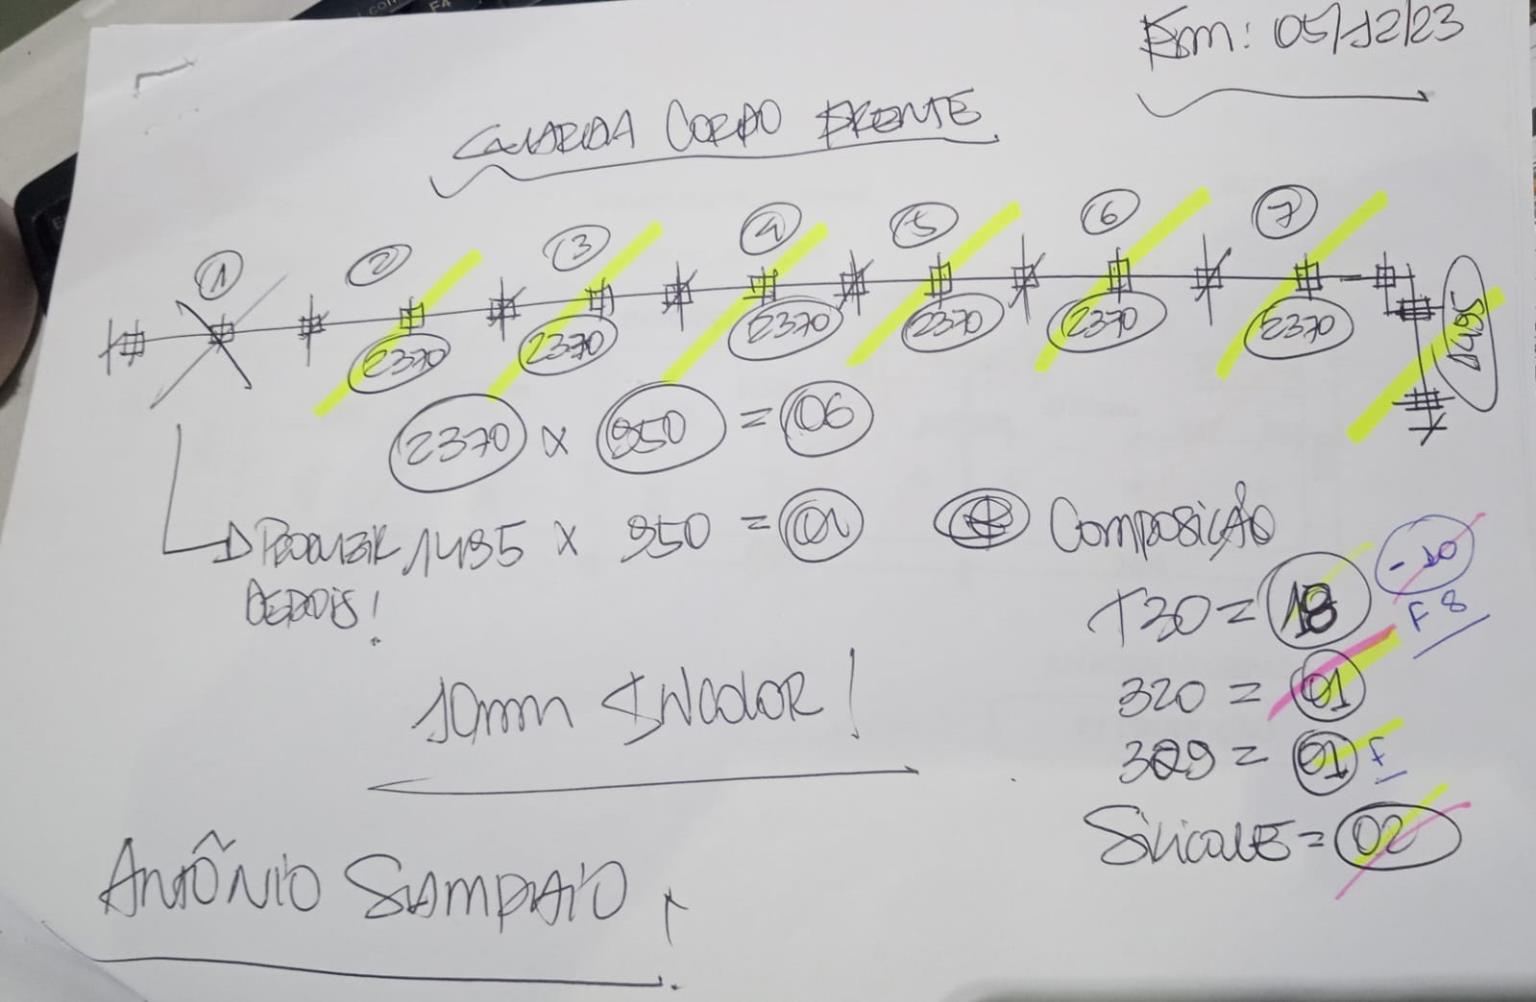 Em: 05/12/23
GUARDA CORPO FRENTE
1 2 3 4 5 6 7
2370 2370 2370 2370 2370 2370 1495
2370 x 950 = 06
PRODUZIR 1495 x 950 = 01
DEPOIS!
Composição
T30 = 18 - 10
F 8
320 = 01
309 = 01 F
10mm INCOLOR!
SILICONE = 02
ANTÔNIO SAMPAIO